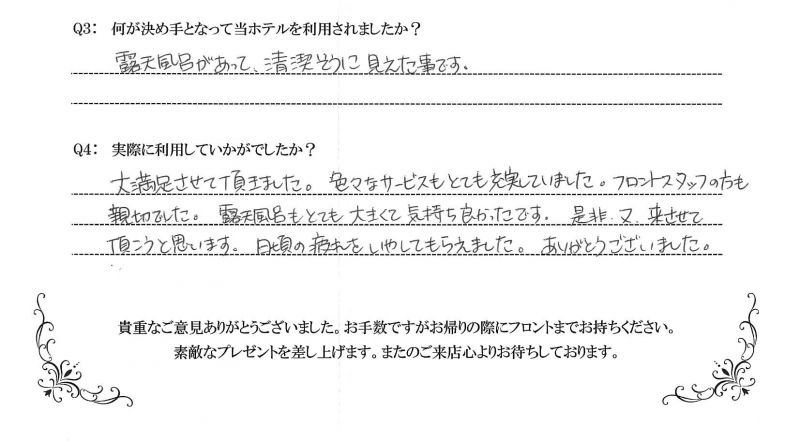 Q3: 何が決め手となって当ホテルを利用されましたか？
露天風呂があって、清潔そうに見えた事です。
Q4: 実際に利用していかがでしたか？
大満足させて頂きました。色々なサービスもとても充実していました。フロントスタッフの方も
親切でした。露天風呂もとても大きくて気持ち良かったです。是非、又、来させて
頂こうと思います。日頃の疲れをいやしてもらえました。ありがとうございました。
貴重なご意見ありがとうございました。お手数ですがお帰りの際にフロントまでお持ちください。
素敵なプレゼントを差し上げます。またのご来店心よりお待ちしております。